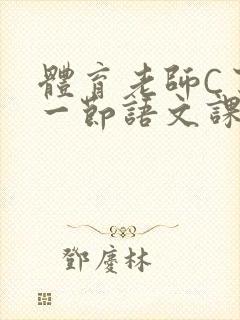 體育老師C
一節語文課
鄧慶林